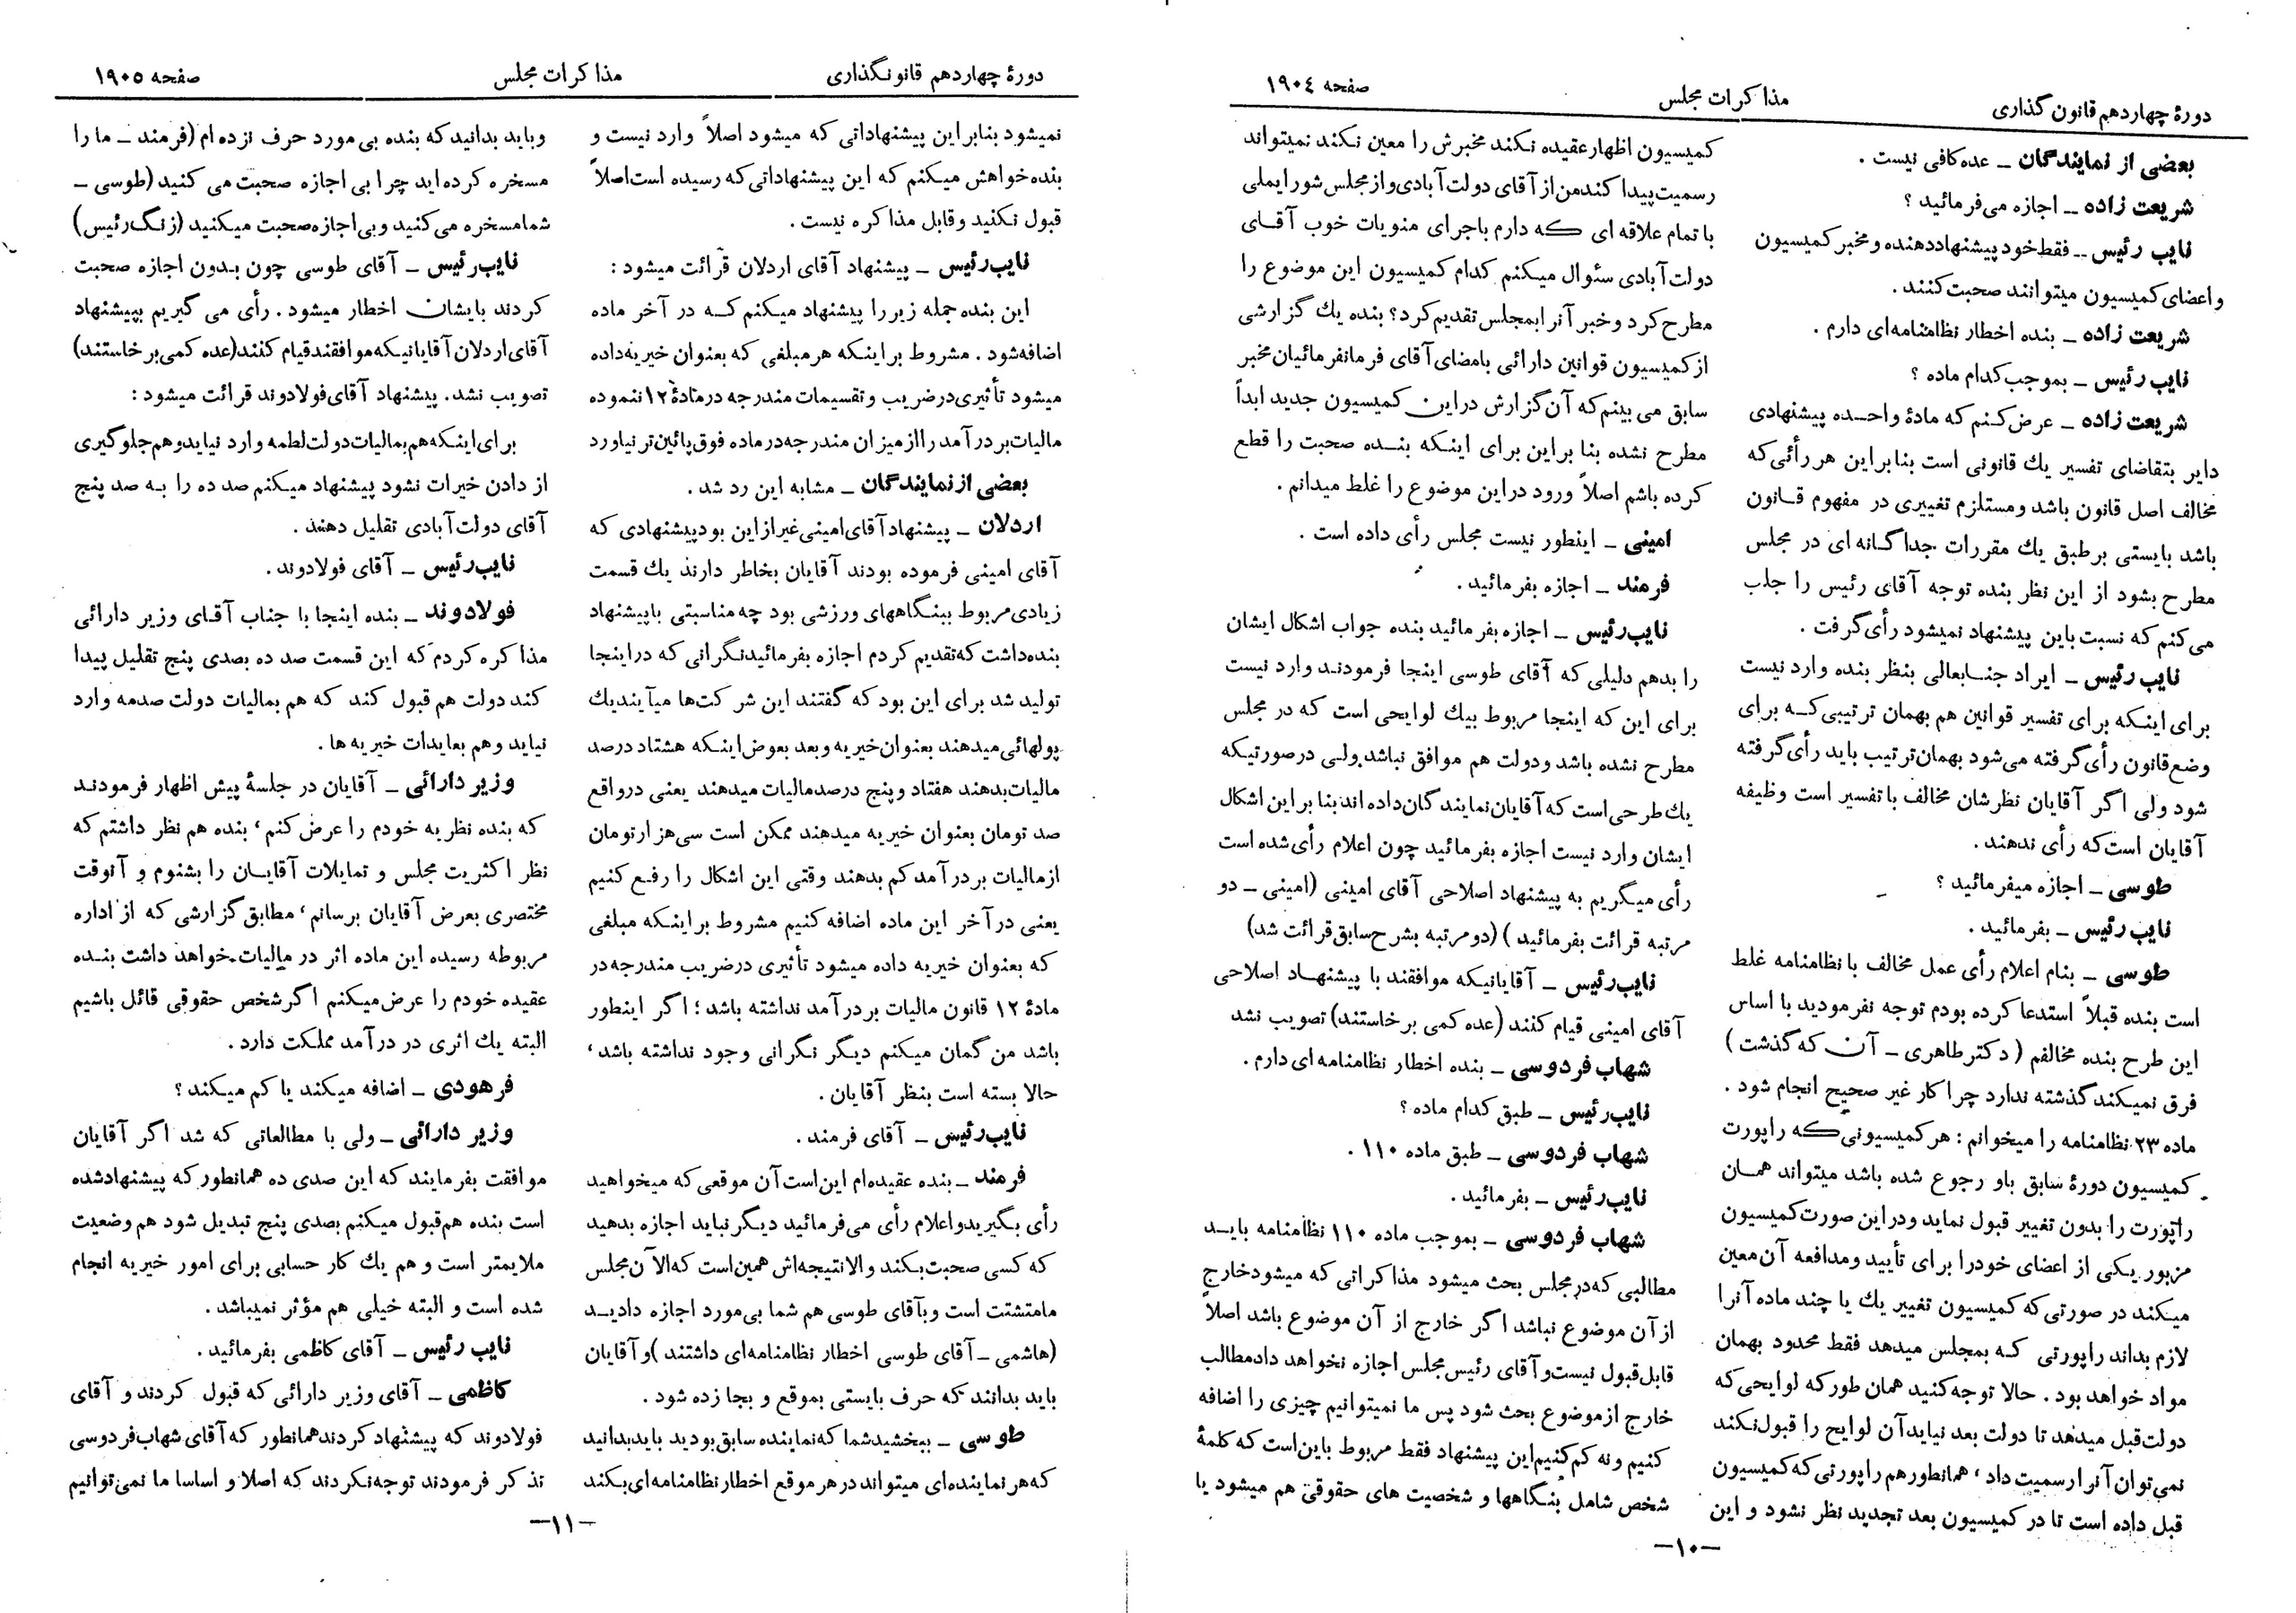 دورهٔ چهاردهم قانون گذاری
مذاکرات مجلس
صفحه ۱۹۰٤
بعضی از نمایندگان ــ عده کافی نیست .
شریعت زاده ــ اجازه می‌فرمائید ؟
نایب رئیس ــ فقط خود پیشنهاد دهنده و مخبر کمیسیون
و اعضای کمیسیون میتوانند صحبت کنند .
شریعت زاده ــ بنده اخطار نظامنامه‌ای دارم .
نایب رئیس ــ بموجب کدام ماده ؟
شریعت زاده ــ عرض کنم که مادهٔ واحــده پیشنهادی
دایر بتقاضای تفسیر یك قانونی است بنابراین هر رأئی که
مخالف اصل قانون باشد ومستلزم تغییری در مفهوم قــانون
باشد بایستی بر طبق یك مقررات جداگـانه ای در مجلس
مطرح بشود از این نظر بنده توجه آقای رئیس را جلب
می‌کنم که نسبت باین پیشنهاد نمیشود رأی گرفت .
نایب رئیس ــ ایراد جنــابعالی بنظر بنده وارد نیست
برای اینکه برای تفسیر قوانین هم بهمان ترتیبی کــه برای
وضع قانون رأی گرفته می‌شود بهمان ترتیب باید رأی گرفته
شود ولی اگر آقایان نظرشان مخالف با تفسیر است وظیفه
آقایان است که رأی ندهند .
طوسی ــ اجازه میفرمائید ؟
نایب رئیس ــ بفرمائید .
طوسی ــ بنام اعلام رأی عمل مخالف با نظامنامه غلط
است بنده قبلاً استدعا کرده بودم توجه نفرمودید با اساس
این طرح بنده مخالفم ( دکتر طاهری ــ آن که گذشت )
فرق نمیکند گذشته ندارد چرا کار غیر صحیح انجام شود .
ماده ۲۳ نظامنامه را میخوانم : هر کمیسیونی که راپورت
کمیسیون دورهٔ سابق باو رجوع شده باشد میتواند همــان
راپورت را بدون تغییر قبول نماید ودر این صورت کمیسیون
مزبور یکی از اعضای خود را برای تأیید ومدافعه آن معین
میکند در صورتی که کمیسیون تغییر یك یا چند ماده آنرا
لازم بداند راپورتی کــه بمجلس میدهد فقط محدود بهمان
مواد خواهد بود . حالا توجه کنید همان طور که لوایحی که
دولت قبل میدهد تا دولت بعد نیاید آن لوایح را قبول نکند
نمی‌توان آنرا رسمیت داد ، همانطور هم راپورتی که کمیسیون
قبل داده است تا در کمیسیون بعد تجدید نظر نشود و این
کمیسیون اظهار عقیده نکند مخبرش را معین نکند نمیتواند
رسمیت پیدا کند من از آقای دولت آبادی و از مجلس شورایملی
با تمام علاقه ای که دارم باجرای منویات خوب آقــای
دولت آبادی سئوال میکنم کدام کمیسیون این موضوع را
مطرح کرد و خبر آنرا بمجلس تقدیم کرد؟ بنده یك گزارشی
از کمیسیون قوانین دارائی بامضای آقای فرمانفرمائیان مخبر
سابق می بینم که آن گزارش در این کمیسیون جدید ابداً
مطرح نشده بنا براین برای اینکه بنــده صحبت را قطع
کرده باشم اصلاً ورود در این موضوع را غلط میدانم .
امینی ــ اینطور نیست مجلس رأی داده است .
فرمند ــ اجازه بفرمائید .
نایب‌رئیس ــ اجازه بفرمائید بنده جواب اشکال ایشان
را بدهم دلیلی که آقای طوسی اینجا فرمودنــد وارد نیست
برای این که اینجا مربوط بیك لوایحی است که در مجلس
مطرح نشده باشد و دولت هم موافق نباشد ولــی در صورتیکه
یك طرحی است که آقایان نمایندگان داده اند بنا براین اشکال
ایشان وارد نیست اجازه بفرمائید چون اعلام رأی شده است
رأی میگریم به پیشنهاد اصلاحی آقای امینی (امینی ــ دو
مرتبه قرائت بفرمائید ) (دو مرتبه بشرح سابق قرائت شد)
نایب‌رئیس ــ آقایانیکه موافقند با پیشنهــاد اصلاحی
آقای امینی قیام کنند (عده کمی بر خاستند) تصویب نشد
شهاب فردوسی ــ بنده اخطار نظامنامه ای دارم .
نایب‌رئیس ــ طبق کدام ماده ؟
شهاب فردوسی ــ طبق ماده ۱۱۰ .
نایب‌رئیس ــ بفرمائید .
شهاب فردوسی ــ بموجب ماده ۱۱۰ نظامنامه بایــد
مطالبی که در مجلس بحث میشود مذاکراتی که میشود خارج
از آن موضوع نباشد اگر خارج از آن موضوع باشد اصلاً
قابل قبول نیست و آقای رئیس مجلس اجازه نخواهد داد مطالب
خارج از موضوع بحث شود پس ما نمیتوانیم چیزی را اضافه
کنیم و نه کم کنیم این پیشنهاد فقط مربوط باین است که کلمهٔ
شخص شامل بنگاهها و شخصیت های حقوقی هم میشود یا
ــ۱۰ــ
دورهٔ چهاردهم قانونگذاری
مذاکرات مجلس
صفحه ۱۹۰٥
نمیشود بنابراین پیشنهاداتی که میشود اصلاً وارد نیست و
بنده خواهش میکنم که این پیشنهاداتی که رسیده است اصلاً
قبول نکنید و قابل مذاکره نیست .
نایب‌رئیس ــ پیشنهاد آقای اردلان قرائت میشود :
این بنده جمله زیر را پیشنهاد میکنم کــه در آخر ماده
اضافه شود . مشروط بر اینکه هر مبلغی که بعنوان خیریه داده
میشود تأثیری در ضریب و تقسیمات مندرجه در مادهٔ ۱۲ ننموده
مالیات بر درآمد را از میزان مندرجه در ماده فوق پائین تر نیاورد
بعضی از نمایندگان ــ مشابه این رد شد .
اردلان ــ پیشنهاد آقای امینی غیر از این بود پیشنهادی که
آقای امینی فرموده بودند آقایان بخاطر دارند یك قسمت
زیادی مربوط ببنگاههای ورزشی بود چه مناسبتی با پیشنهاد
بنده داشت که تقدیم کردم اجازه بفرمائید نگرانی که در اینجا
تولید شد برای این بود که گفتند این شرکت‌ها میآیند یك
پولهائی میدهند بعنوان خیریه و بعد بعوض اینکه هشتاد درصد
مالیات بدهند هفتاد و پنج درصد مالیات میدهند یعنی در واقع
صد تومان بعنوان خیریه میدهند ممکن است سی هزار تومان
از مالیات بر درآمد کم بدهند وقتی این اشکال را رفــع کنیم
یعنی در آخر این ماده اضافه کنیم مشروط بر اینکه مبلغی
که بعنوان خیریه داده میشود تأثیری در ضریب مندرجه در
مادهٔ ۱۲ قانون مالیات بر درآمد نداشته باشد ؛ اگر اینطور
باشد من گمان میکنم دیگر نگرانی وجود نداشته باشد ،
حالا بسته است بنظر آقایان .
نایب‌رئیس ــ آقای فرمند .
فرمند ــ بنده عقیده‌ام این است آن موقعی که میخواهید
رأی بگیرید و اعلام رأی می‌فرمائید دیگر نباید اجازه بدهید
که کسی صحبت بکند والا نتیجه‌اش همین است که الآن مجلس
ما متشتت است و بآقای طوسی هم شما بی‌مورد اجازه دادیــد
(هاشمی ــ آقای طوسی اخطار نظامنامه‌ای داشتند ) و آقایان
باید بدانند که حرف بایستی بموقع و بجا زده شود .
طوسی ــ ببخشید شما که نماینده سابق بودید باید بدانید
که هر نماینده‌ای میتواند در هر موقع اخطار نظامنامه‌ای بکند
و باید بدانید که بنده بی مورد حرف نزده ام (فرمند ــ ما را
مسخره کرده اید چرا بی اجازه صحبت می کنید (طوسی ــ
شما مسخره می‌کنید و بی اجازه صحبت میکنید (زنگ رئیس)
نایب‌رئیس ــ آقای طوسی چون بــدون اجازه صحبت
کردند بایشان اخطار میشود . رأی می گیریم بپیشنهاد
آقای اردلان آقایانیکه موافقند قیام کنند (عده کمی بر خاستند)
تصویب نشد . پیشنهاد آقای فولادوند قرائت میشود :
برای اینکه هم بمالیات دولت لطمه وارد نیاید و هم جلوگیری
از دادن خیرات نشود پیشنهاد میکنم صد ده را بــه صد پنج
آقای دولت آبادی تقلیل دهند .
نایب‌رئیس ــ آقای فولادوند .
فولادوند ــ بنده اینجا با جناب آقــای وزیر دارائی
مذاکره کردم که این قسمت صد ده بصدی پنج تقلیل پیدا
کند دولت هم قبول کند که هم بمالیات دولت صدمه وارد
نیاید و هم بعایدات خیریه ها .
وزیر دارائی ــ آقایان در جلسهٔ پیش اظهار فرمودنــد
که بنده نظریه خودم را عرض کنم ، بنده هم نظر داشتم که
نظر اکثریت مجلس و تمایلات آقایــان را بشنوم و آنوقت
مختصری بعرض آقایان برسانم ، مطابق گزارشی که از اداره
مربوطه رسیده این ماده اثر در مالیات خواهد داشت بنــده
عقیده خودم را عرض میکنم اگر شخص حقوقی قائل باشیم
البته یك اثری در درآمد مملکت دارد .
فرهودی ــ اضافه میکند یا کم میکند ؟
وزیر دارائی ــ ولی با مطالعاتی که شد اگر آقایان
موافقت بفرمایند که این صدی ده همانطور که پیشنهاد شده
است بنده هم قبول میکنم بصدی پنج تبدیل شود هم وضعیت
ملایمتر است و هم یك کار حسابی برای امور خیریه انجام
شده است و البته خیلی هم مؤثر نمیباشد .
نایب رئیس ــ آقای کاظمی بفرمائید .
کاظمی ــ آقای وزیر دارائی که قبول کردند و آقای
فولادوند که پیشنهاد کردند همانطور که آقای شهاب فردوسی
تذکر فرمودند توجه نکردند که اصلا و اساسا ما نمی‌توانیم
ــ۱۱ــ